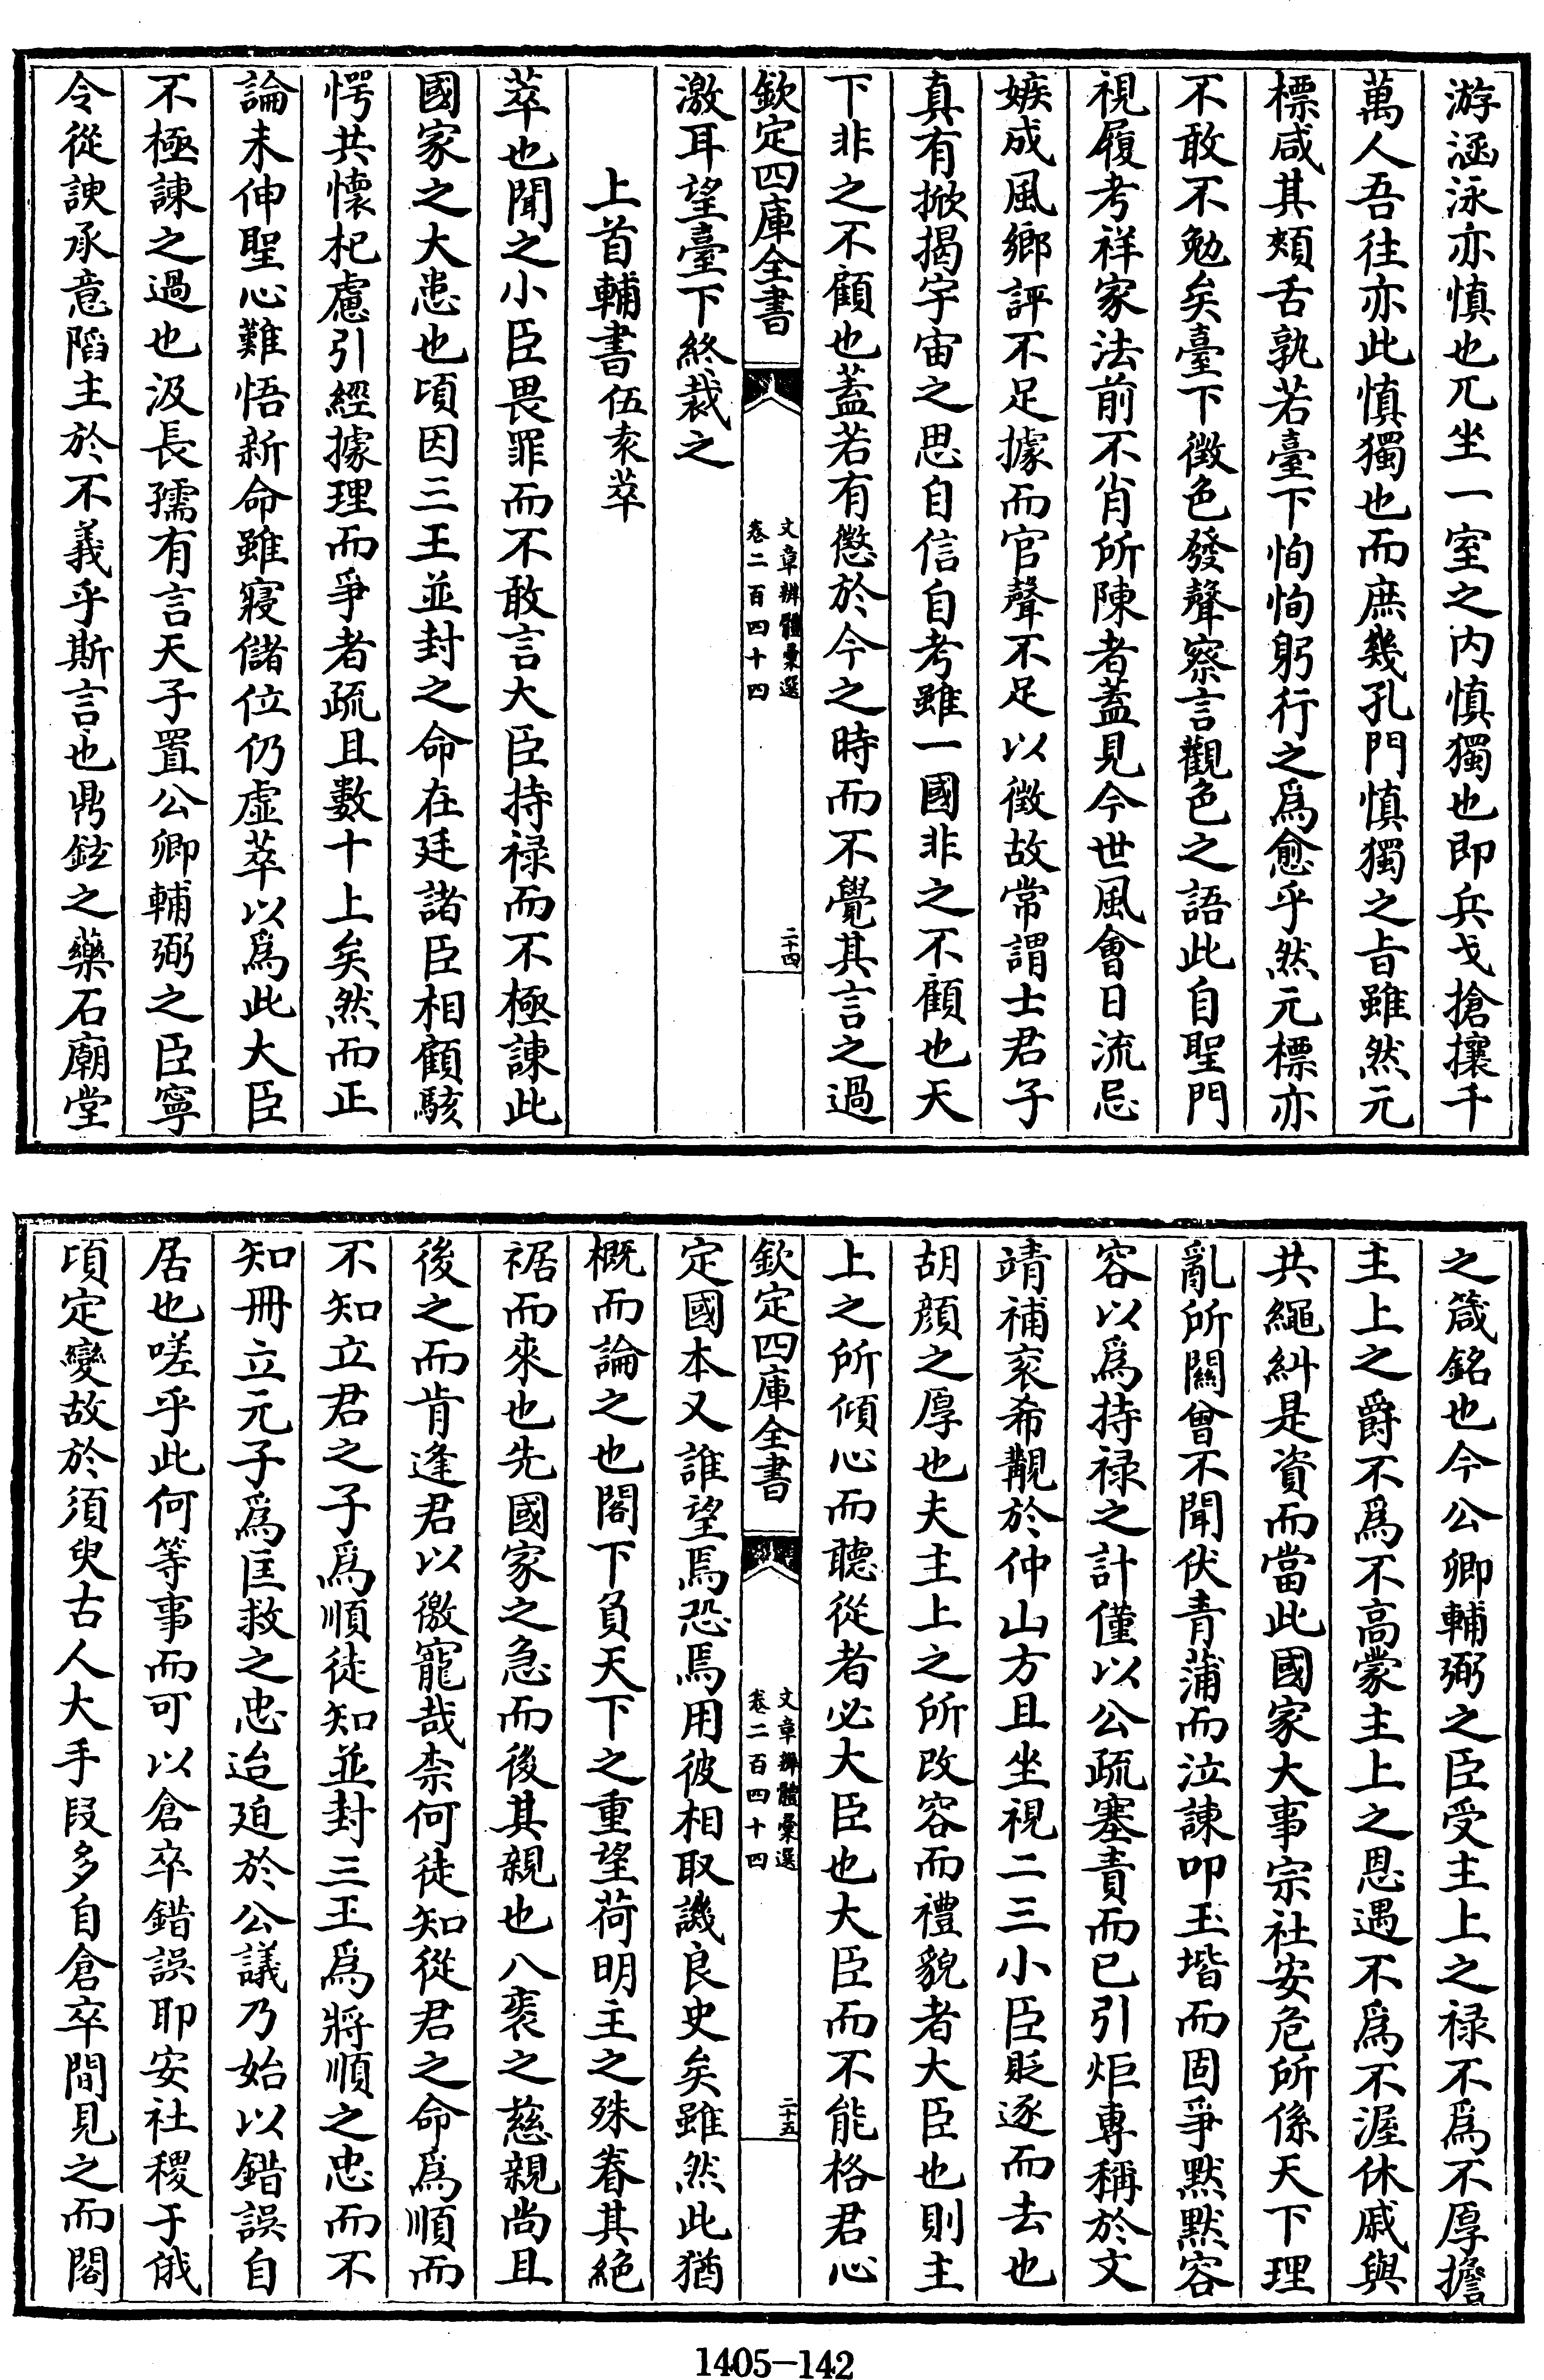 游涵泳亦慎也兀坐一室之内慎獨也即兵戈搶攘千
萬人吾往亦此慎獨也而庶幾孔門慎獨之旨雖然元
標咸其頰舌孰若臺下恂恂躬行之爲愈乎然元標亦
不敢不勉矣臺下徵色發聲察言觀色之語此自聖門
視履考祥家法前不肖所陳者蓋見今世風會日流忌
嫉成風鄉評不足據而官聲不足以徵故常謂士君子
真有掀揭宇宙之思自信自考雖一國非之不顧也天
下非之不顧也蓋若有懲於今之時而不覺其言之過
欽定四庫全書
文章辨體彙選
卷二百四十四
二十四
激耳望臺下終裁之
上首輔書伍袁萃
萃也聞之小臣畏罪而不敢言大臣持禄而不極諫此
國家之大患也頃因三王並封之命在廷諸臣相顧駭
愕共懷杞慮引經據理而爭者疏且數十上矣然而正
論未伸聖心難悟新命雖寢儲位仍虛萃以爲此大臣
不極諫之過也汲長孺有言天子置公卿輔弼之臣寧
令從諛承意陷主於不義乎斯言也鼎鉉之藥石廟堂
之箴銘也今公卿輔弼之臣受主上之禄不爲不厚擔
主上之爵不爲不高蒙主上之恩遇不爲不渥休戚與
共繩糾是資而當此國家大事宗社安危所係天下理
亂所關曾不聞伏青蒲而泣諫叩玉堦而固爭默默容
容以爲持禄之計僅以公疏塞責而已引炬專稱於文
靖補衮希覯於仲山方且坐視二三小臣貶逐而去也
胡顔之厚也夫主上之所改容而禮貌者大臣也則主
上之所傾心而聽從者必大臣也大臣而不能格君心
欽定四庫全書
文章辨體彙選
卷二百四十四
二十五
定國本又誰望焉恐焉用彼相取譏良史矣雖然此猶
概而論之也閣下負天下之重望荷明主之殊眷其絶
裾而來也先國家之急而後其親也八袠之慈親尚且
後之而肯逢君以徼寵哉柰何徒知從君之命爲順而
不知立君之子爲順徒知並封三王爲將順之忠而不
知冊立元子爲匡救之忠迨廹於公議乃始以錯誤自
居也嗟乎此何等事而可以倉卒錯誤耶安社稷于俄
頃定變故於須臾古人大手段多自倉卒間見之而閣
1405-142